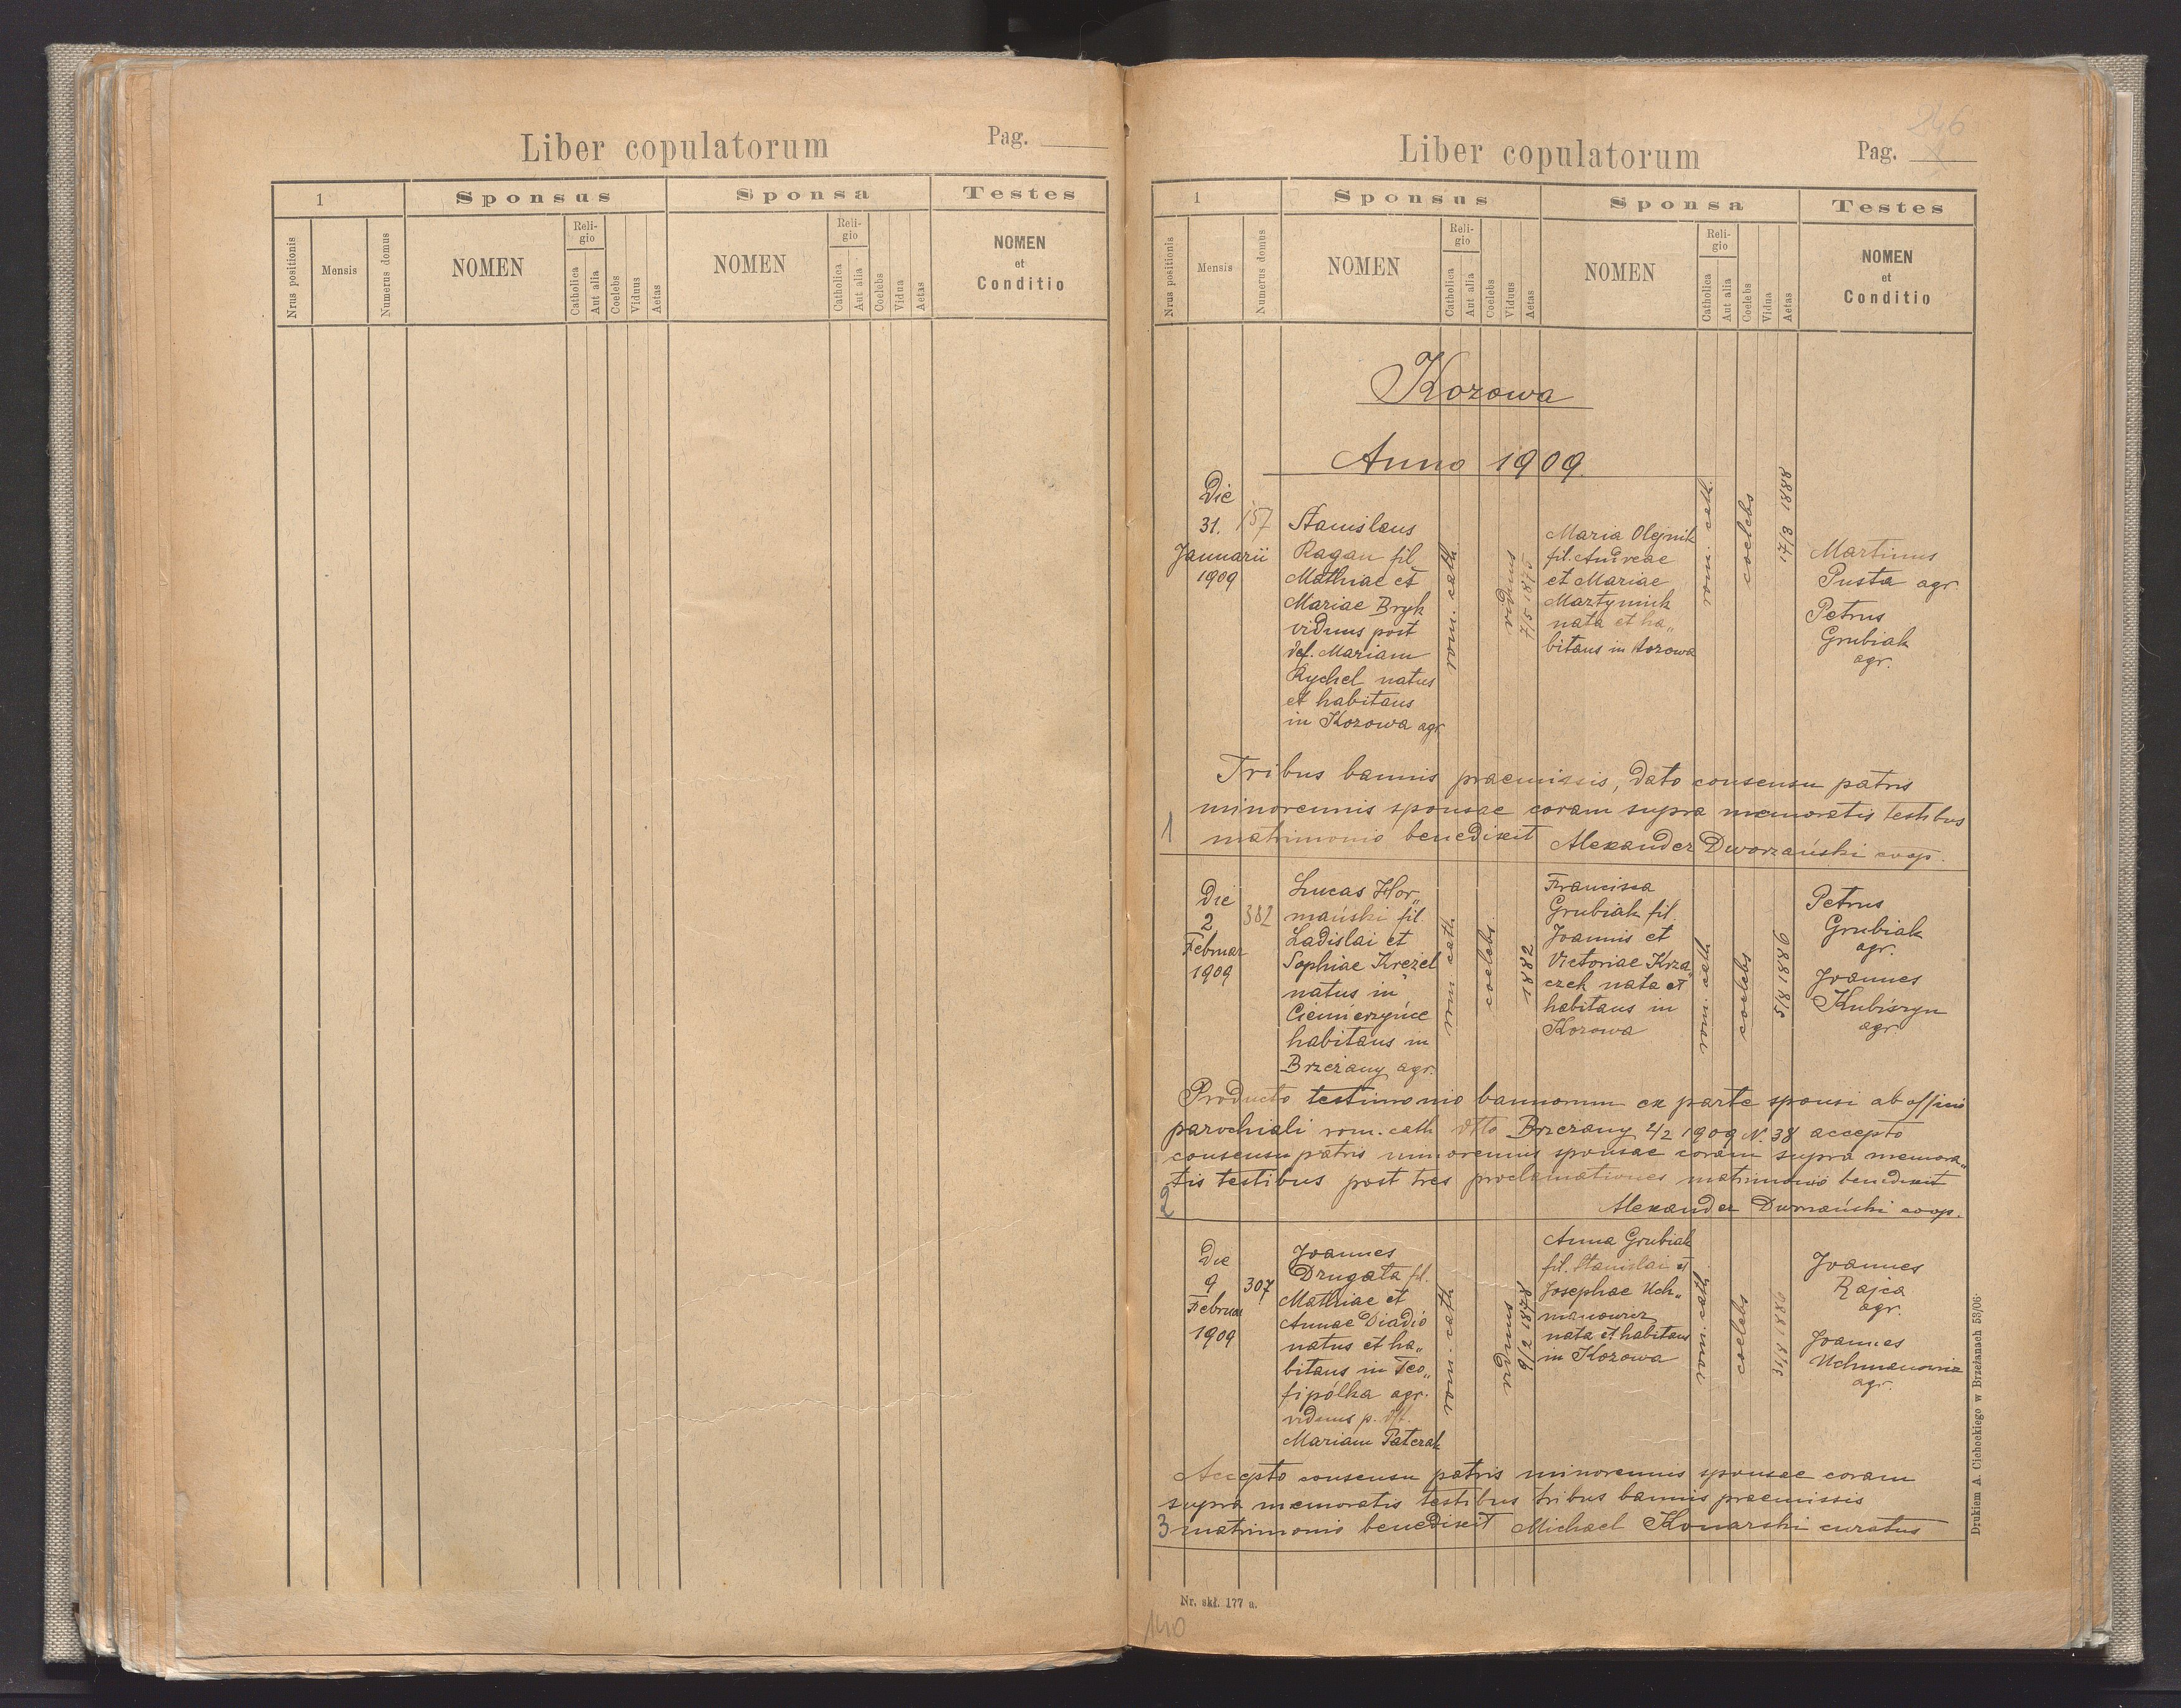 Liber copulatorum
Pag.
1
Sponsus
Sponsa
Testes
Nrus positionis
Mensis
Numerus domus
NOMEN
Reli-
gio
Catholica
Aut alia
Coelebs
Viduus
Aetas
NOMEN
Reli-
gio
Catholica
Aut alia
Coelebs
Vidua
Aetas
NOMEN
et
Conditio
Liber copulatorum
Pag.
246
1
Sponsus
Sponsa
Testes
Nrus positionis
Mensis
Numerus domus
NOMEN
Reli-
gio
Catholica
Aut alia
Coelebs
Viduus
Aetas
NOMEN
Reli-
gio
Catholica
Aut alia
Coelebs
Vidua
Aetas
NOMEN
et
Conditio
Kozowa
Anno 1909.
Die
31.
Januarii
1909
157
Stanislaus
Ragan fil
Mathiae et
Mariae Bryk
viduus post
def. Mariam
Rychel natus
et habitans
in Kozowa agr.
rom. cath.
viduus
7/5 1875
Maria Olejnik
fil. Andreae
et Mariae
Martyniuk
nata et ha„
bitans in Kozowa
rom. cath.
coelebs
17/8 1888
Martinus
Pusta agr.
Petrus
Grubiak
agr.
Tribus bannis praemissis, dato consensu patris
minorennis sponsae coram supra memoratis testibus
1 matrimonio benedixit Alexander Dworzański coop.
Die
2
Februar
1909
382
Lucas Hor„
mański fil.
Ladislai et
Sophiae Krężel
natus in
Ciemierzyńce
habitans in
Brzeżany agr.
rom cath
coelebs
1882
Francisca
Grubiak fil.
Joannis et
Victoriae Krza„
czek nata et
habitans in
Kozowa
rom. cath.
coelebs
5/8 1886
Petrus
Grubiak
agr.
Joannes
Kubiszyn
agr.
Producto testimonio bannorum ex parte sponsi ab officio
parochiali rom. cath dtto Brzeżany 2/2 1909 N. 38 accepto
consensu patris minorennis sponsae coram supra memora„
tis testibus post tres proclamationes matrimonio benedixit
2
Alexander Dworzański coop.
Die
9
Februar
1909
307
Joannes
Drugata fil.
Mathiae et
Annae Diadio
natus et ha„
bitans in Teo„
fipólka agr.
viduus p. dft.
Mariam Patczak
rom. cath
viduus
9/2 1878
Anna Grubiak
fil. Stanislai et
Josephae Uch„
manowicz
nata et habitans
in Kozowa
rom. cath.
coelebs
Joannes
Rajca
agr.
Joannes
Uchmanowicz
agr.
Accepto consensu patris minorennis sponsae coram
supra memoratis testibus tribus bannis praemissis
3 matrimonio benedixit Michael Konarski curatus
Drukiem A. Cichockiego w Brzeżanach 53/06·
Nr. skł. 177 a.
140